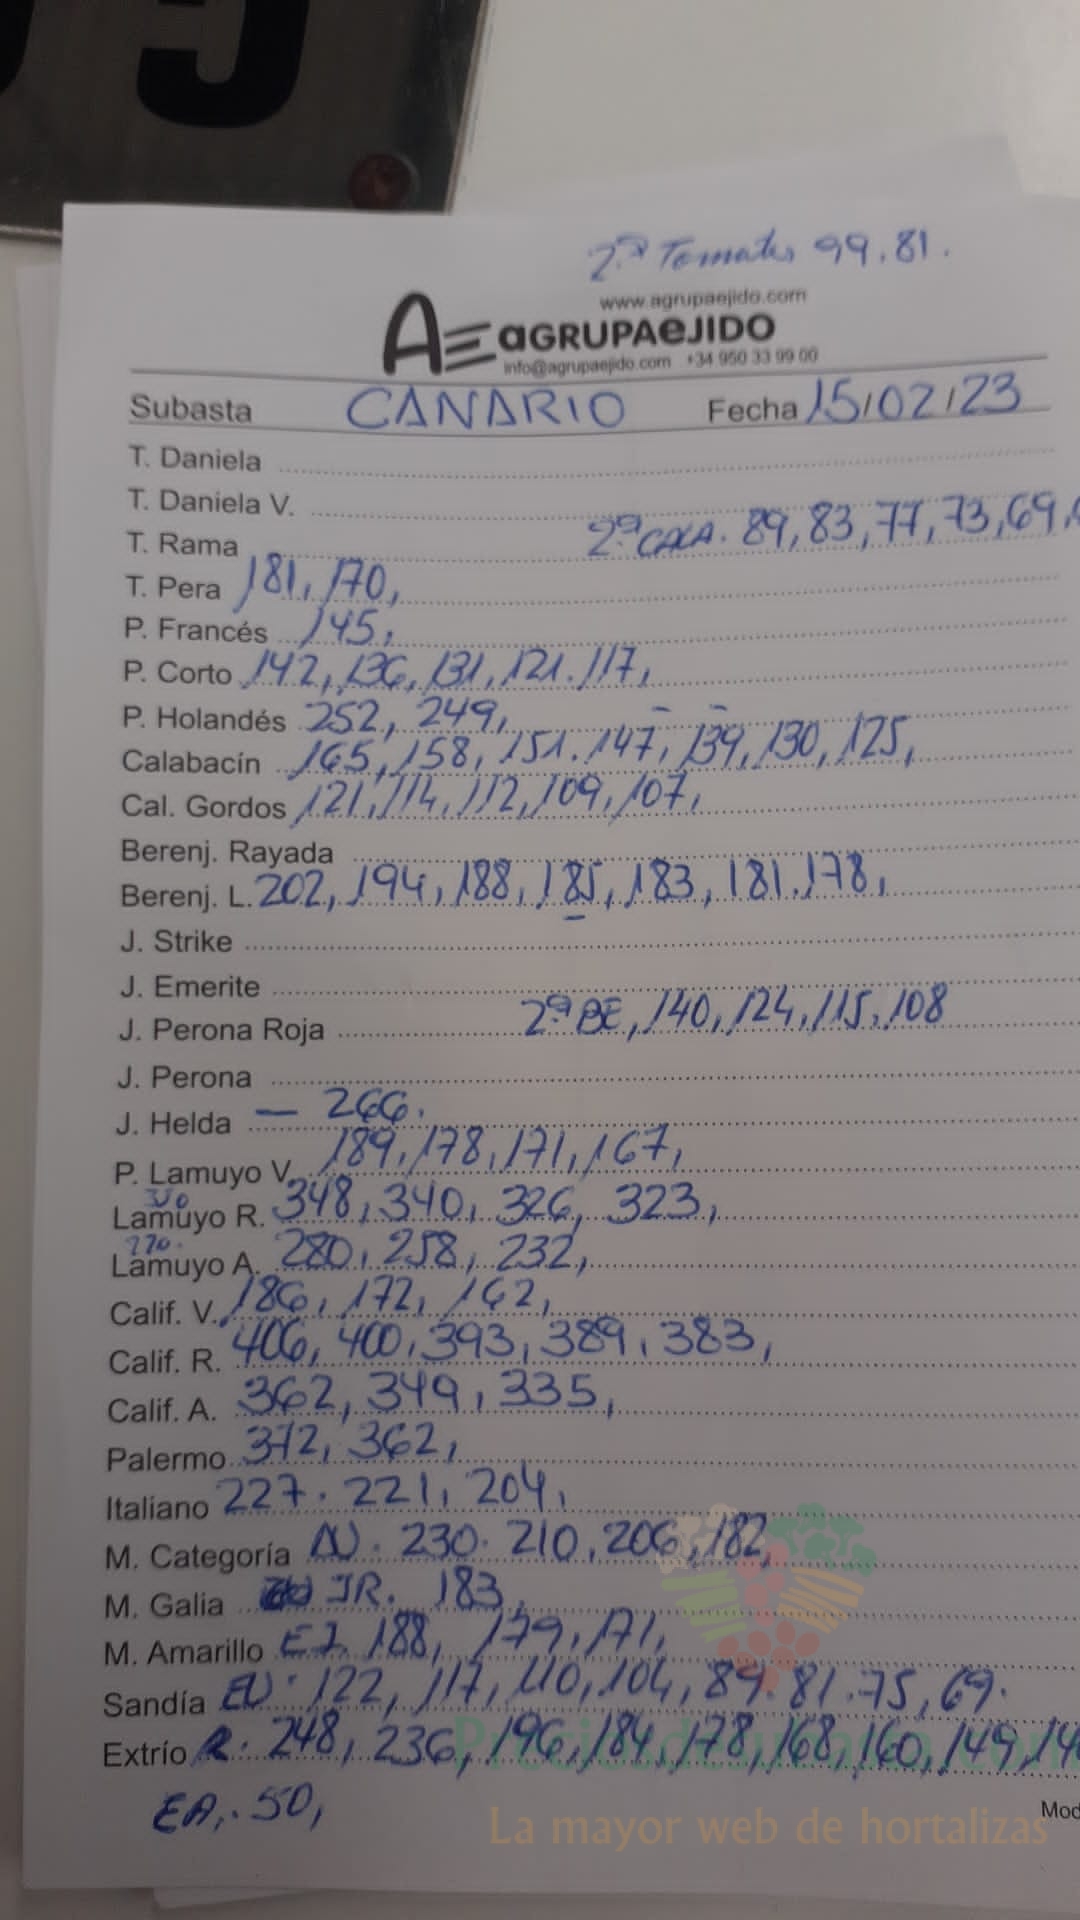 2ª Tomates 99, 81.
www.agrupaejido.com
AE aGRUPAeJIDO
info@agrupaejido.com +34 950 33 99 00
Subasta CANARIO Fecha 15/02/23
T. Daniela
T. Daniela V.
T. Rama 2ª CALA. 89, 83, 77, 73, 69,
T. Pera 181, 170,
P. Francés 145,
P. Corto 142, 136, 131, 121. 117,
P. Holandés 252, 249,
Calabacín 165, 158, 151. 147, 139, 130, 125,
Cal. Gordos 121, 114, 112, 109, 107,
Berenj. Rayada
Berenj. L. 202, 194, 188, 185, 183, 181, 178,
J. Strike
J. Emerite
J. Perona Roja 2ª BE, 140, 124, 115, 108
J. Perona
J. Helda — 266.
P. Lamuyo V. 189, 178, 171, 167,
350
Lamuyo R. 348, 340, 326, 323,
270.
Lamuyo A. 280, 258, 232,
Calif. V. 186, 172, 162,
Calif. R. 406, 400, 393, 389, 383,
Calif. A. 362, 349, 335,
Palermo 372, 362,
Italiano 227. 221, 204,
M. Categoría AV. 230. 210, 206, 182,
M. Galia IR. 183,
M. Amarillo EI. 188, 179, 171,
Sandía EV. 122, 117, 110, 104, 89. 81. 75, 69.
Extrío R. 248, 236, 196, 184, 178, 168, 160, 149,
EA,. 50,
Mod
La mayor web de hortalizas